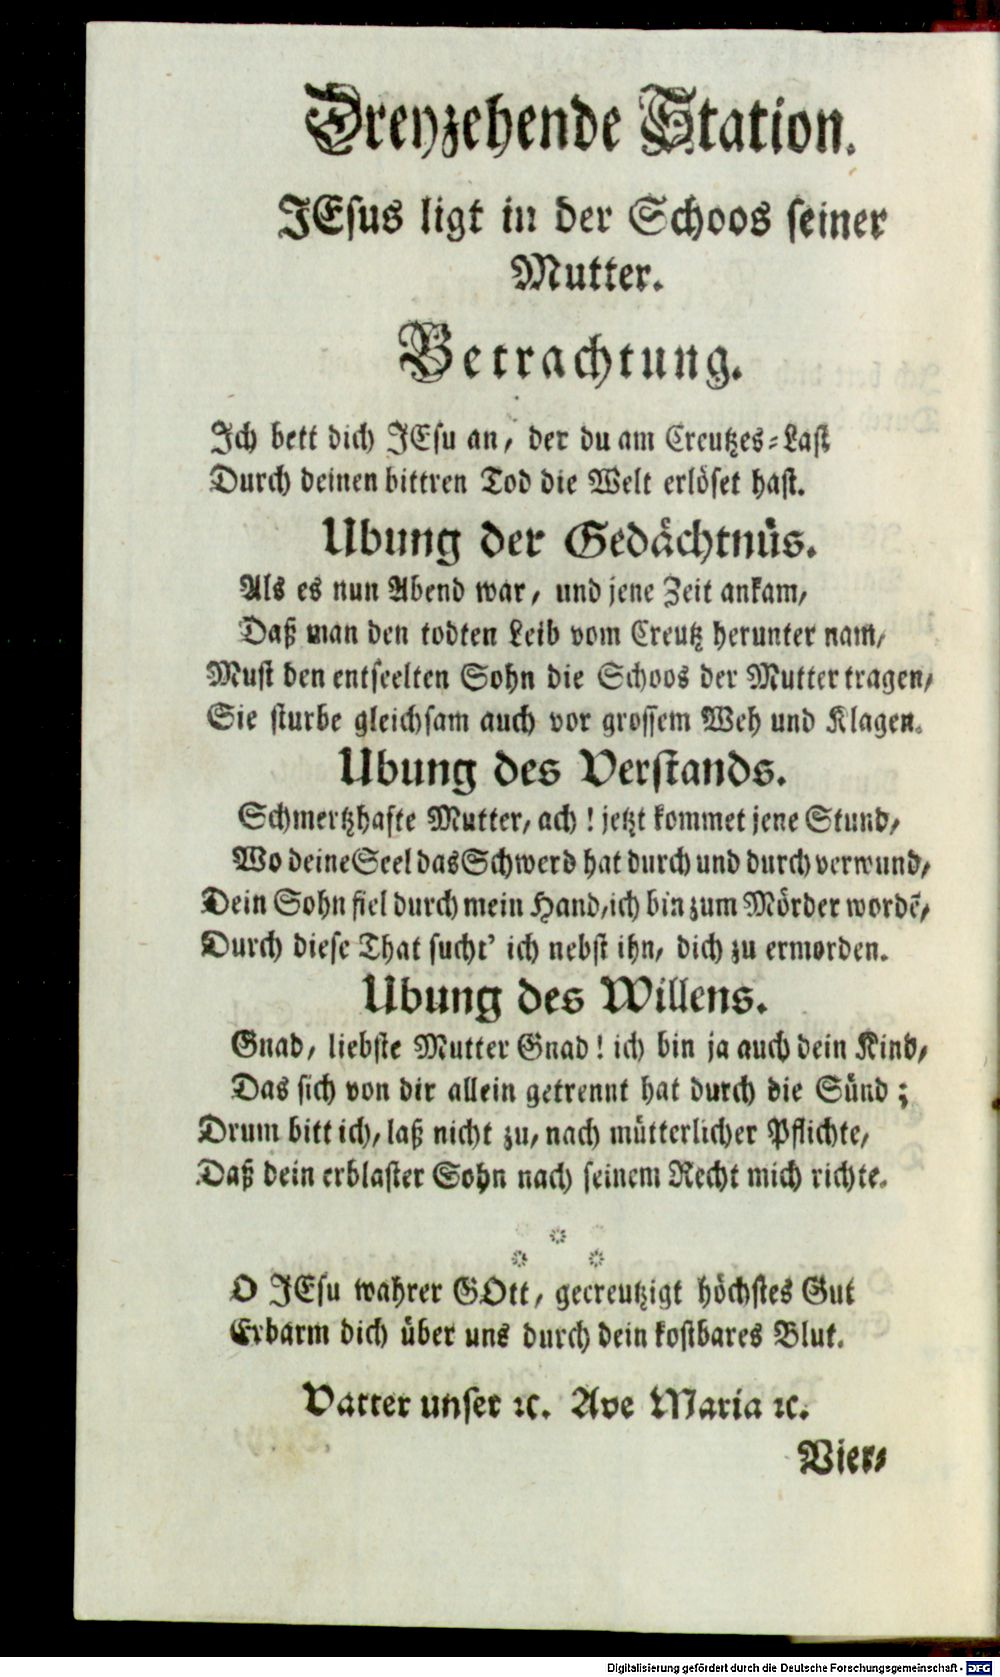 Dreyzehende Station.
JEsus ligt in der Schoos seiner
Mutter.
Betrachtung.
Ich bett dich JEsu an, der du am Creutzes-Last
Durch deinen bittren Tod die Welt erlöset hast.
Ubung der Gedächtnüs.
Als es nun Abend war, und jene Zeit ankam,
Daß man den todten Leib vom Creutz herunter nam,
Must den entseelten Sohn die Schoos der Mutter tragen,
Sie sturbe gleichsam auch vor grossem Weh und Klagen.
Ubung des Verstands.
Schmertzhafte Mutter, ach! jetzt kommet jene Stund,
Wo deine Seel das Schwerd hat durch und durch verwund,
Dein Sohn fiel durch mein Hand, ich bin zum Mörder wordē,
Durch diese That sucht' ich nebst ihn, dich zu ermorden.
Ubung des Willens.
Gnad, liebste Mutter Gnad! ich bin ja auch dein Kind,
Das sich von dir allein getrennt hat durch die Sünd;
Drum bitt ich, laß nicht zu, nach mütterlicher Pflichte,
Daß dein erblaster Sohn nach seinem Recht mich richte.
* * *
O JEsu wahrer GOtt, gecreutzigt höchstes Gut
Erbarm dich über uns durch dein kostbares Blut.
Vatter unser ꝛc. Ave Maria ꝛc.
Vier-
Digitalisierung gefördert durch die Deutsche Forschungsgemeinschaft - DFG